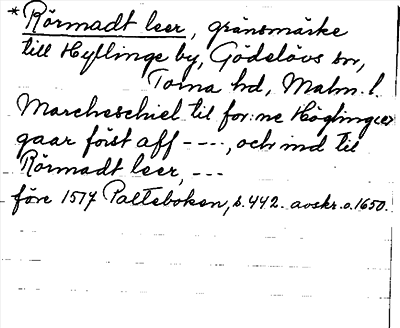 *Rörmadt leer, gränsmärke
till Hyllinge by, Gödelövs sn,
Torna hd, Malm. l.
Marcheschiel til for:ne Höglinge
gaar först aff ----, och ind til
Rörmadt leer, ---
före 1517 Palteboken, s. 442. avskr. o. 1650.